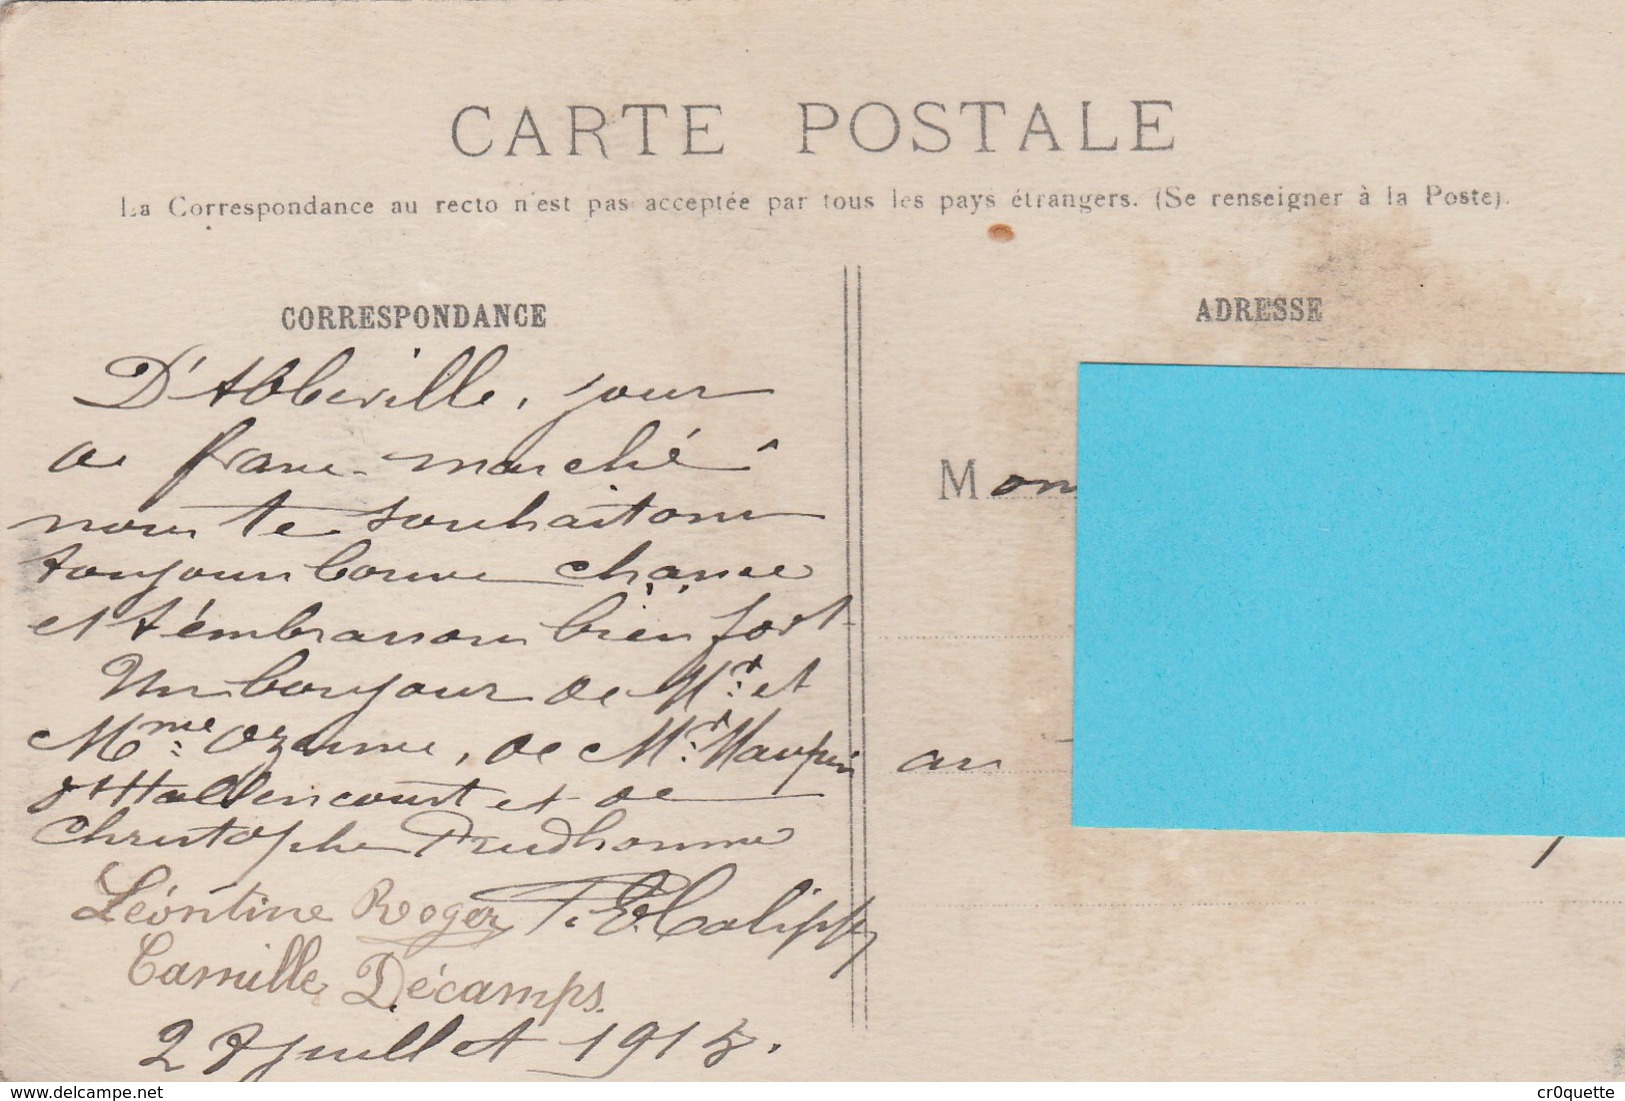 CARTE POSTALE
La Correspondance au recto n'est pas acceptée par tous les pays étrangers. (Se renseigner à la Poste).
CORRESPONDANCE
D'Abbeville, jour
de franc-marché
nous te souhaitons
toujours bonne chance
et t'embrassons bien fort
Un bonjour de Mr. et
Mme Ozenne, de Mr. Maupin
d'Hallencourt et de
Christophe Prudhomme
Léontine Roger
Camille Décamps.
27 juillet 1915.
ADRESSE
Mon
au
delcampe.net
cr0quette